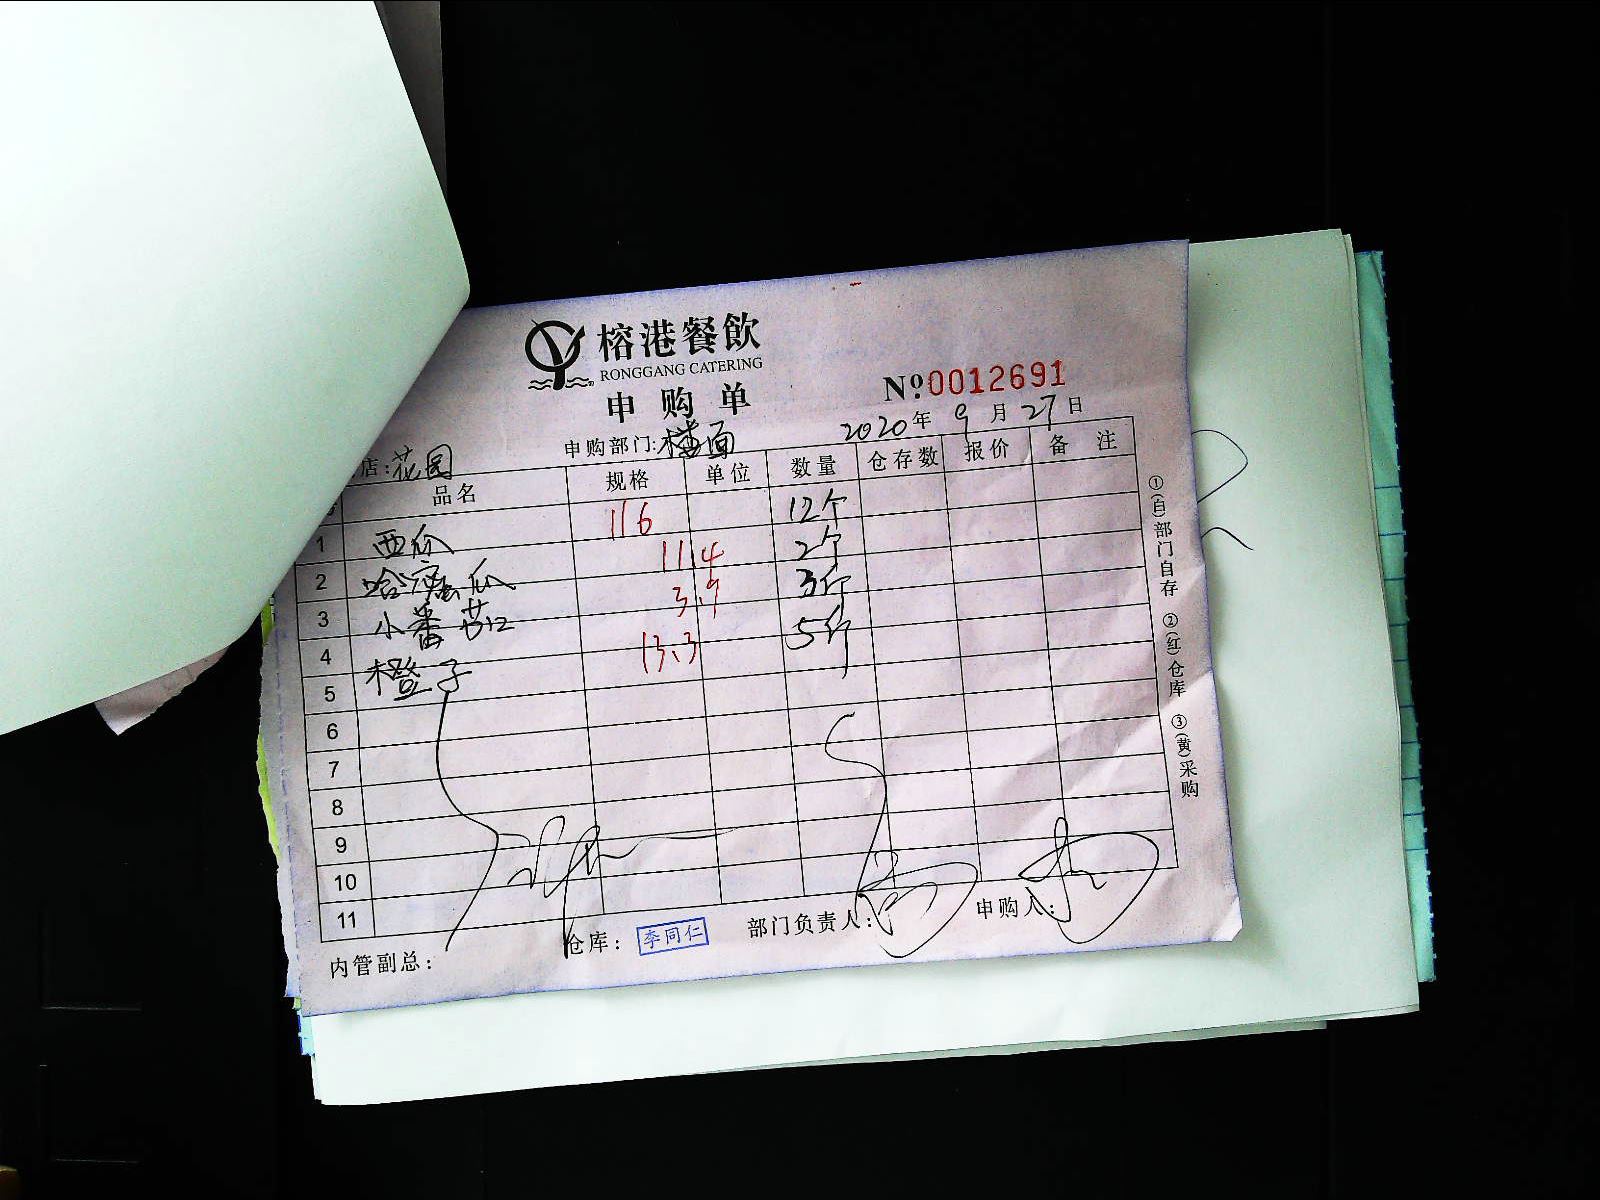 榕港餐飲
RONGGANG CATERING
申购单
No 0012691
店:花园 申购部门:楼面 2020年9月27日
品名 规格 单位 数量 仓存数 报价 备注
1 西瓜 116 12个
2 哈蜜瓜 11.4 2个
3 小番茄 3.9 3斤
4 橙子 13.3 5斤
5
6
7
8
9
10
11
内管副总: 仓库: 李同仁 部门负责人: 申购人:
①(白)部门自存 ②(红)仓库 ③(黄)采购